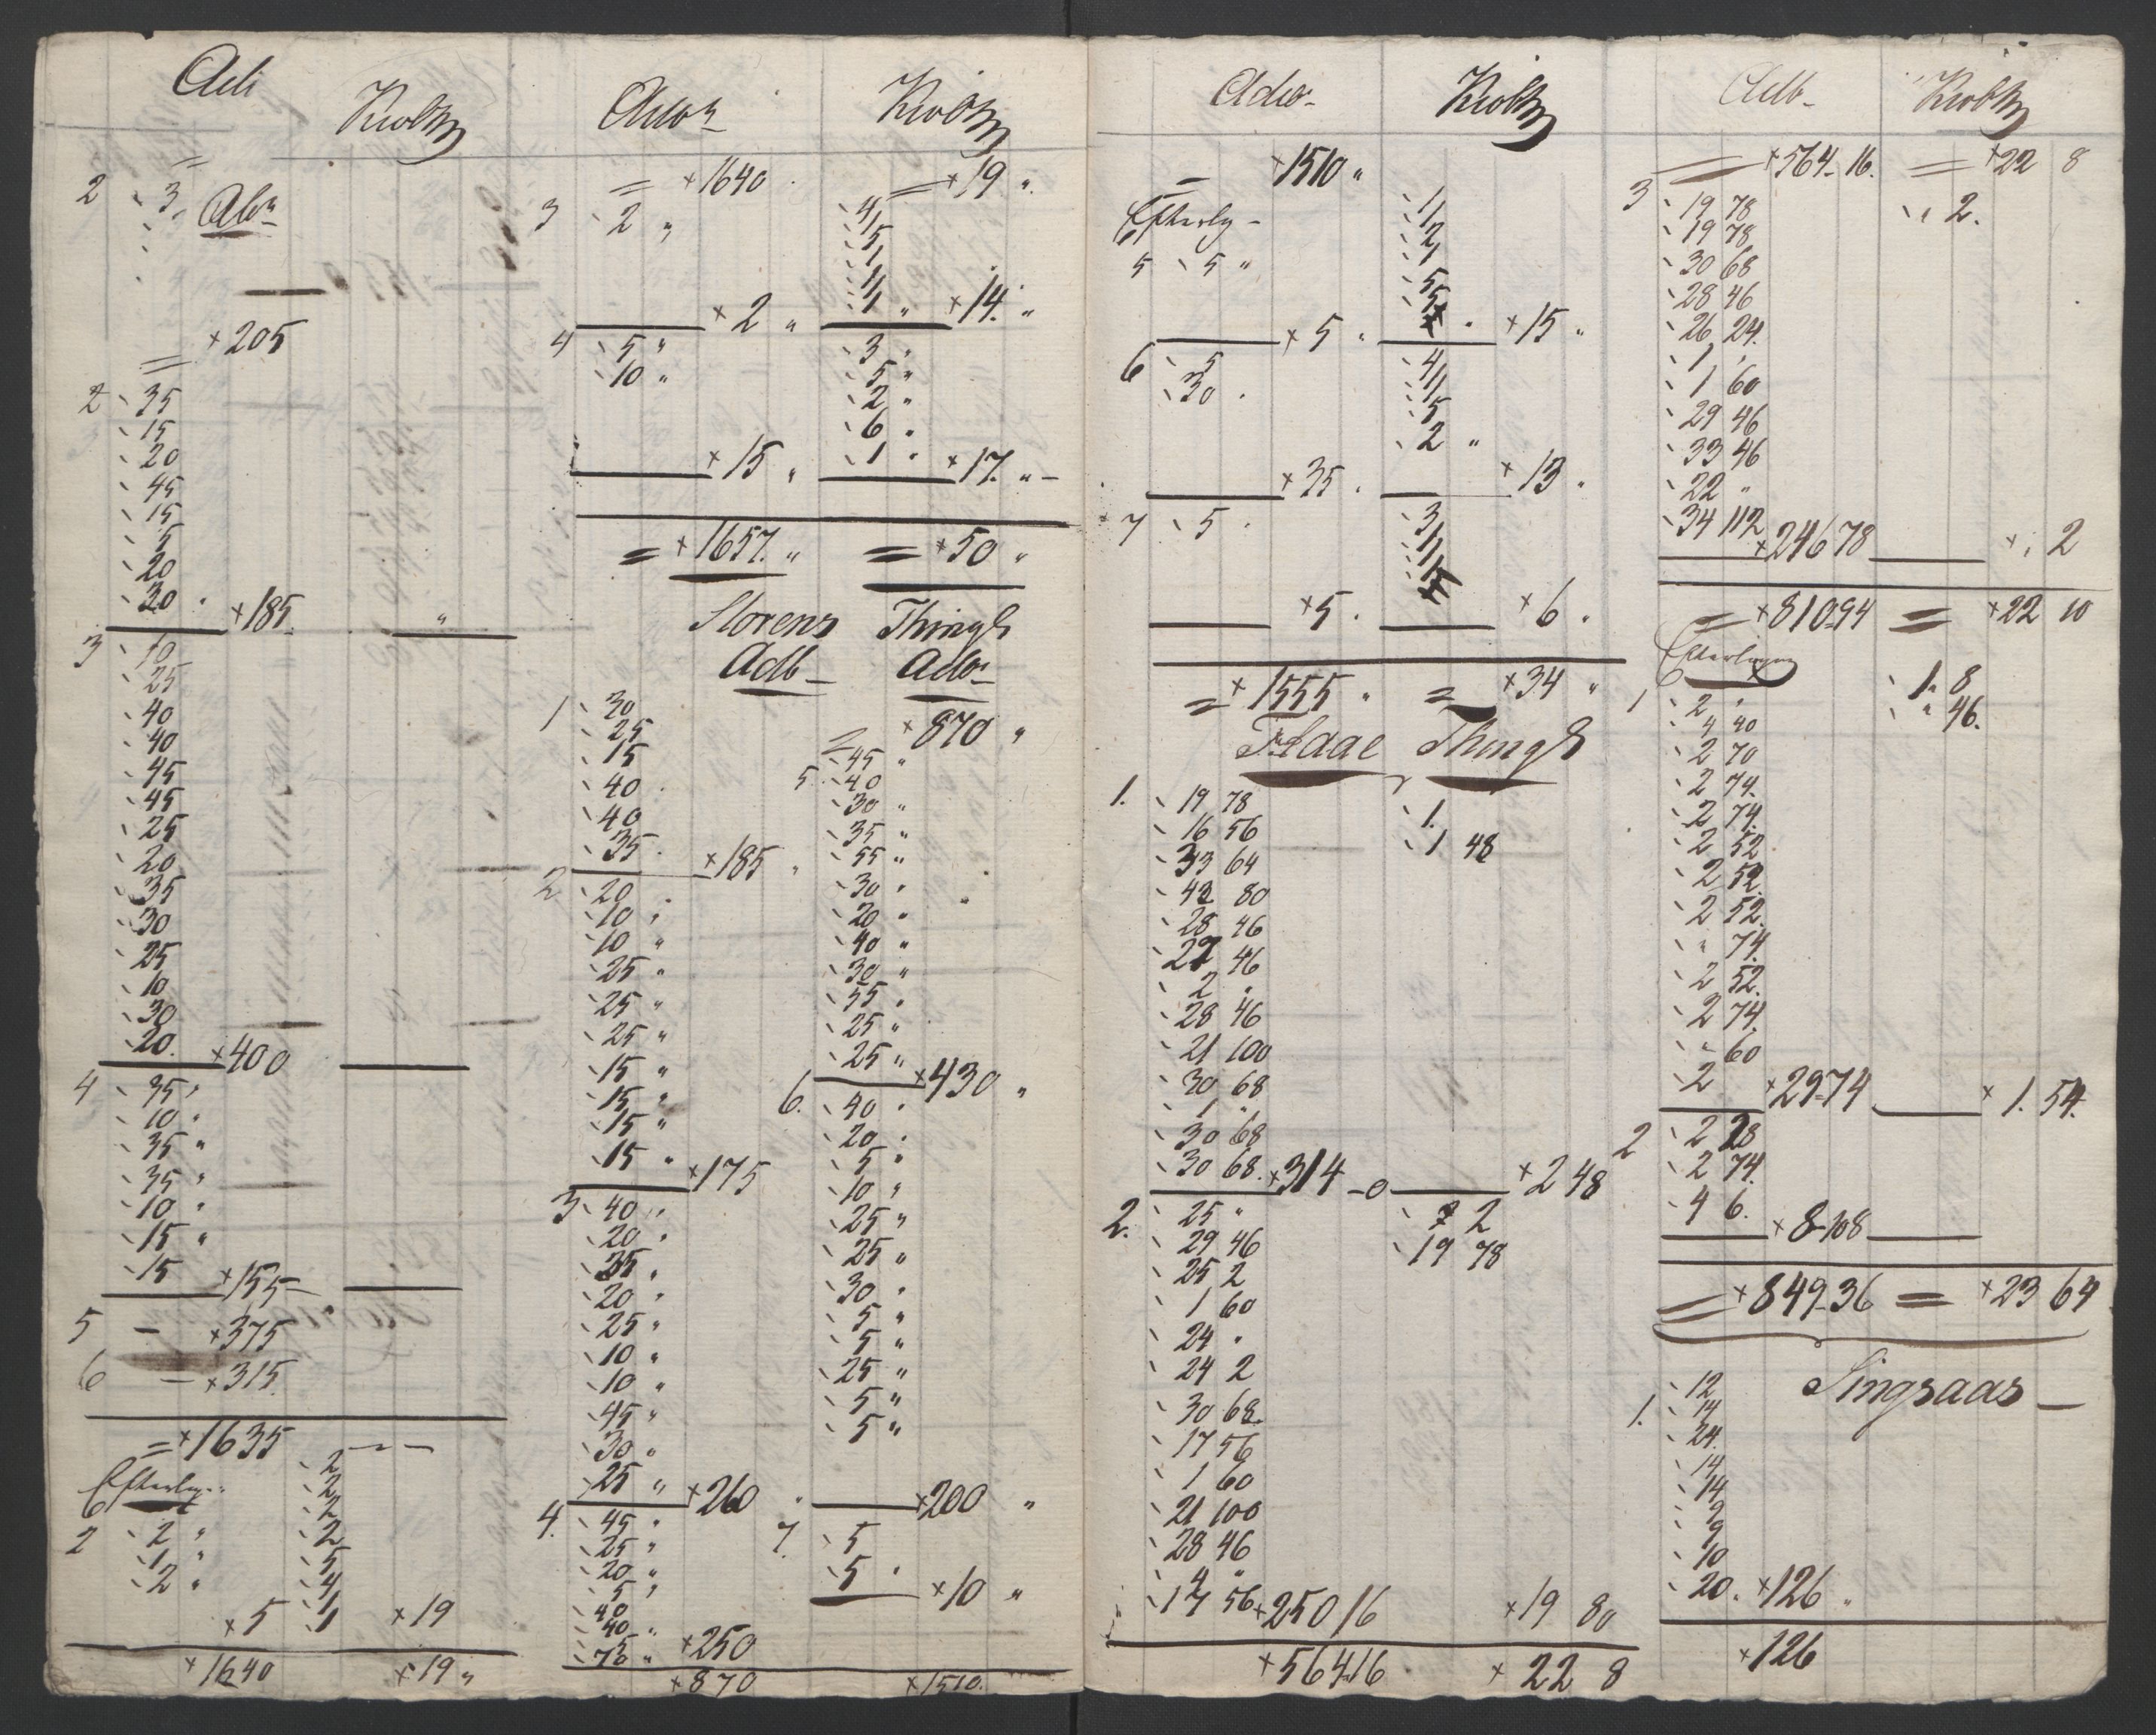 2 3,
+205
2 35
15
20
45
15
5
20
30 +185 "
3 10
25
40
40
45
45
25
20
35
30
25
10
30
20. +400
4 35 "
10 "
35 "
35 "
10 "
15 "
15 +155
5 - +375
6 - +315.
= +1635
Efterlig
2
2
2
2 2 " 2
1 " 5
2 " 4
+5 1 +19
+1640 +19 "
= +1640 = +19 "
3 2 " 4
5
1
1
1
+2 " 1 " +14. "
4 5 " 3 "
10 " 5 "
2 "
6 "
+15 " 1 " +17. "
= +1657. " = +50 "
Storens Thingl
Adb Adb
1 30
25
15
40
40
35 +185 "
2 20 "
10 "
10 "
25 "
25 "
25 "
15 "
15 "
15 "
15 " +175
3 40 "
20 "
35 "
20 "
25 "
10 "
10 "
45 "
30 "
25 " +260
4. 45 "
25 "
20 "
5 "
40
40 "
75 " +250
+870
= +870 "
5 45 "
40
30 "
35 "
55 "
30 "
20 "
40 "
30 "
55 "
25 "
25 " +430 "
6. 40 "
20 "
5 "
10 "
25 "
25 "
30 "
5 "
5 "
25 "
5 "
5 "
+200 "
7. 5
5 " +10 "
+1510.
= +1510 "
Efterlig 1
1
2
5 5 " 1
5
5
+5 " +15 "
6 5 4
30 " 1
1
5
2 "
+35 " +13 "
7 5 " 3
1
1
+5 " +6 "
= +1555 " = +34 "
Flaae Thingl
1. 19 78 1.
16 56 1 48
33 64
42 80
28 46
27 46
2 "
28 46
21 100
30 68
1 "
30 68
30 68. +314 -0 +2 48
2. 25 " 2
29 46 19 78
25 2
1 60
24 "
24 2
30 68.
17 56
1 60
21 100
28 46
4 "
17 56 +250 16 +19 80
+564.16 +22 8
= +564-16. = +22 8
3 19 78 " 2.
19 78
30 68
28 46
26 24.
1 "
1 60
29 46
33 46
22 "
34 112 +246 78 + " 2
= +810.94 = +22 10
Efterlign
1 2 " 1 " 8
4 40 " 46.
2 70
2 74.
2 74.
2 52
2 52.
2 52.
" 74.
2 52.
2 74.
" 60
2 +29-74 +1. 54.
2 2 28
2 74.
4 6. +8-108
= +849-36 = +23 64
Singsaas
1. 12
14
24.
14
14
9
9
10
20. +126 "
+126